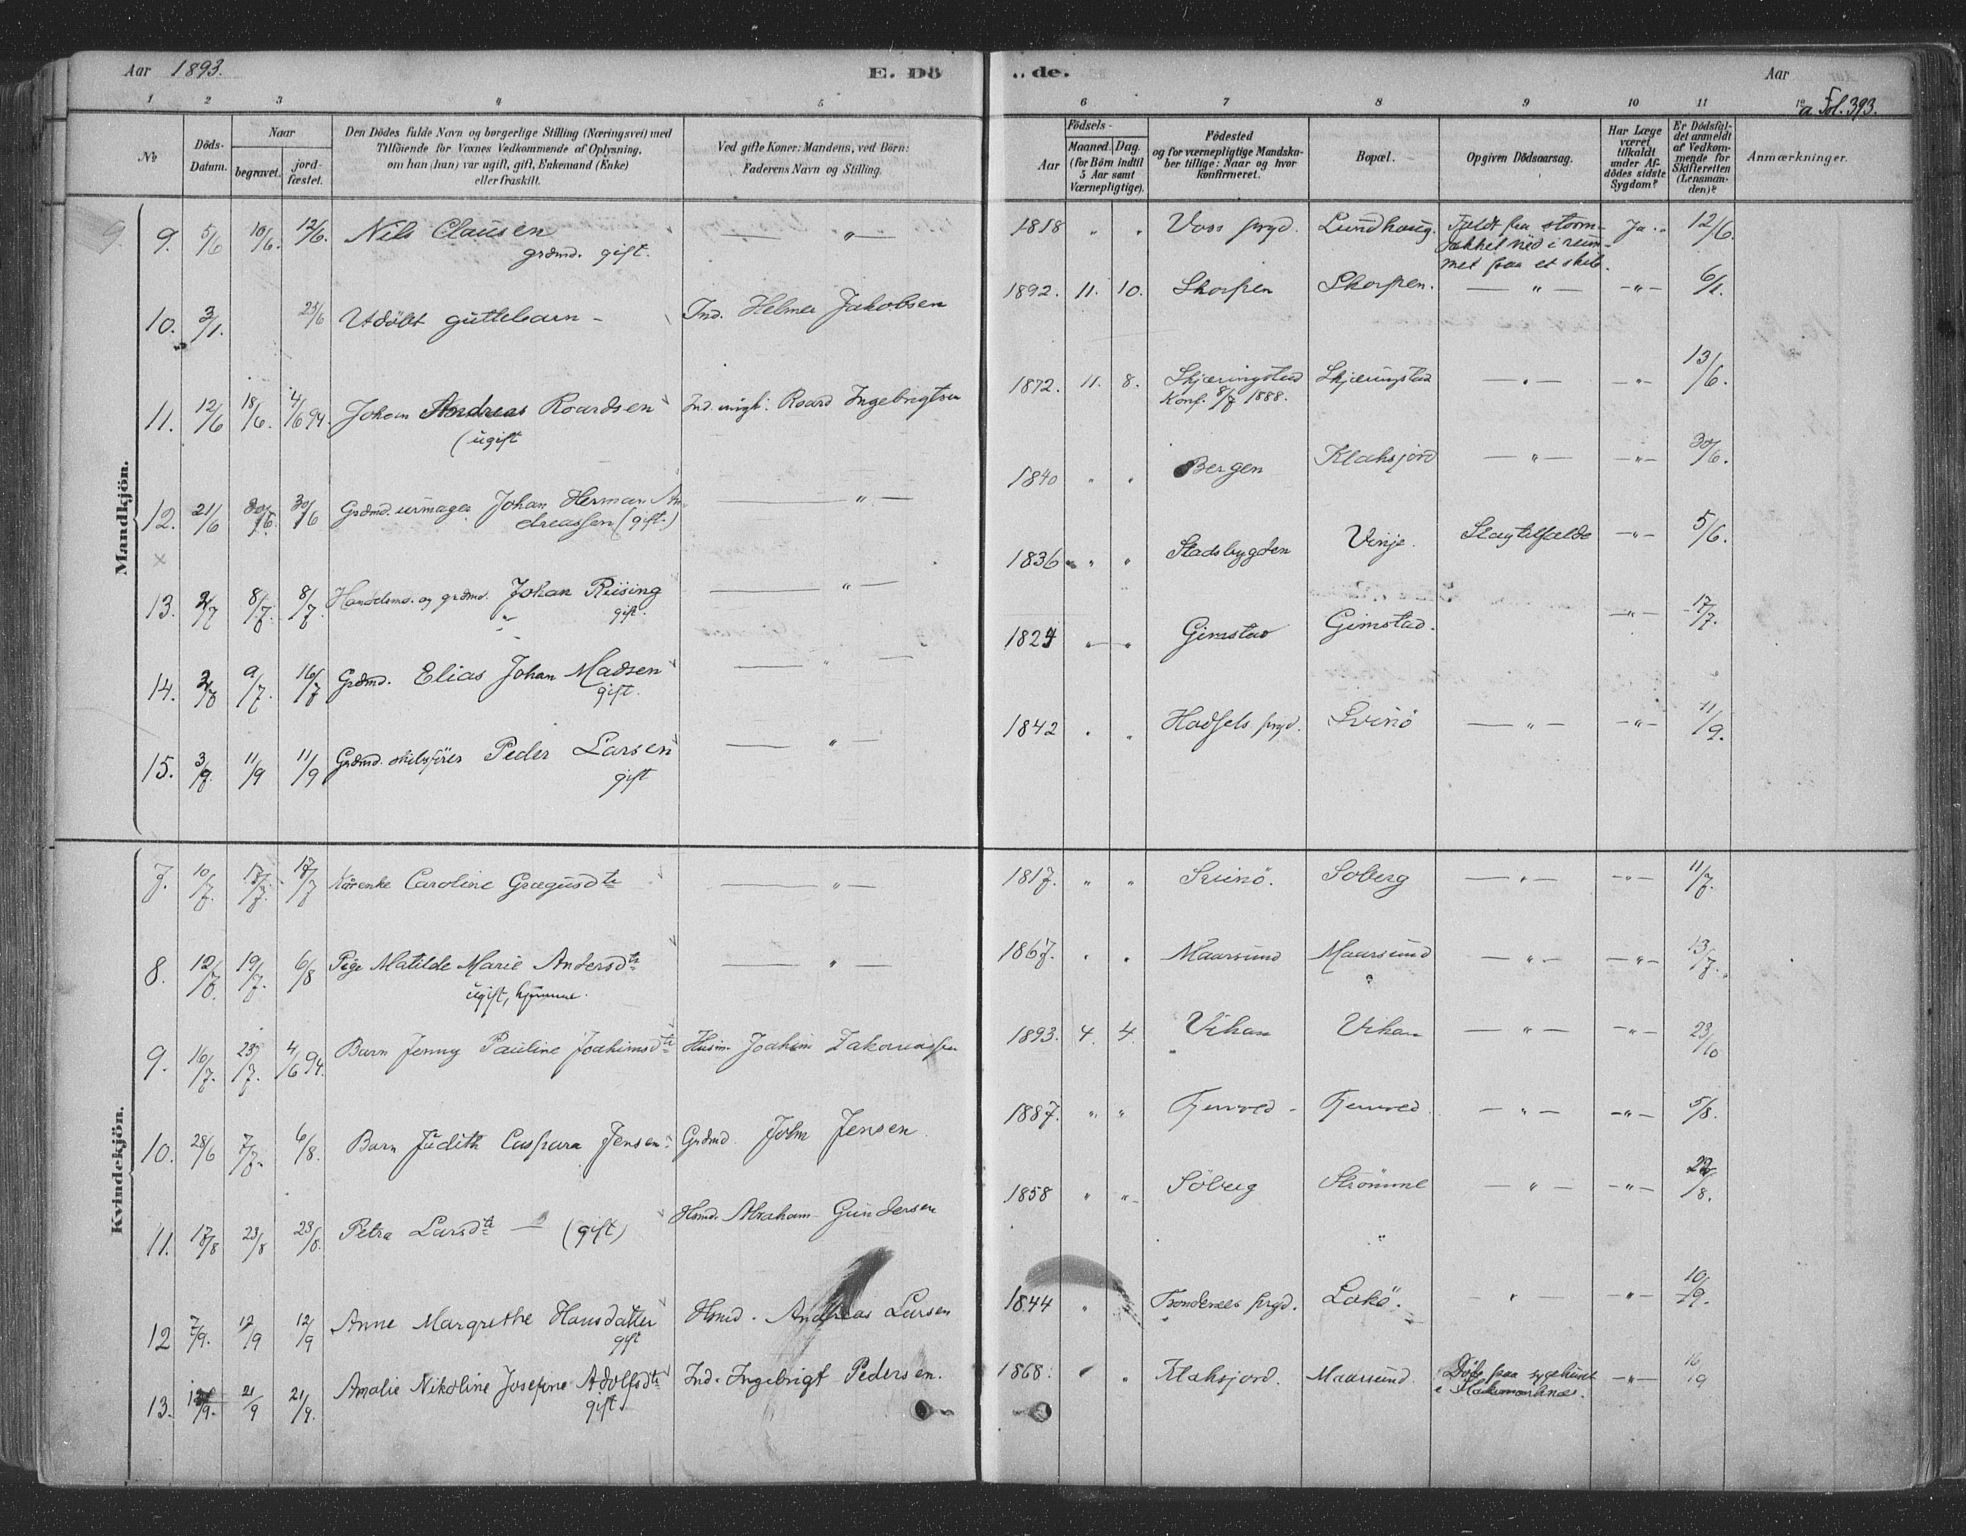 Aar 1893.
E. Dö
1 2 3 4 5
No
Döds-Datum.
Naar
begravet.
jord-fæstet.
Den Dödes fulde Navn og borgerlige Stilling (Næringsvei) med
Tilföiende for Voxnes Vedkommende af Oplysning,
om han (hun) var ugift, gift, Enkemand (Enke)
eller fraskilt.
Ved gifte Koner: Mandens, ved Börn:
Faderens Navn og Stilling.
Mandkjön.
9. 5/6 10/6. 12/6. Nils Clausen
grdmd. gift.
10. 3/1. 25/6 Udöbt guttebarn - Ind. Helmer Jakobsen
11. 12/6 18/6. 4/6 94. Johan Andreas Roardsen Ind. Roard Ingebrigtsen
(ugift
12. 21/6 30/6. 30/6 Grdmd. urmager Johan Herman An-
dreassen (gift.)
13. 2/7 8/7. 8/7 Handelsmd. og grdmd. Johan Rüsing
gift.
14. 2/7 9/7. 16/7 Grdmd. Elias Johan Madsen
gift.
15. 3/9. 11/9 11/9 Grdmd. Peder Larsen
gift
Kvindekjön.
7. 10/7. 17/7. 17/7 Caroline Gregusdtr
8. 12/7. 19/7. 6/8 Pige Matilde Marie Andersdtr
ugift, hjemme.
9. 16/7. 23/7. 4/6 94. Barn Jenny Pauline Joakimsdtr Husm. Joakim Zakariassen
10. 28/6 7/7. 6/8. Barn Judith Caspara Jensen Grdmd. John Jensen
11. 17/8 23/8 23/8. Petra Larsdtr (gift) Hsmd. Abraham Gundersen
12 7/9. 12/9 12/9 Anne Margrethe Hansdatter Hsmd. Andreas Larsen
gift
13. 21/9 21/9. Amalie Nikoline Josefine Adolfsdtr Ind. Ingebrigt Pedersen.
gift
de. Aar
6 7 8 9 10 11 12
a Fol. 393.
Födsels-
Aar
Maaned. Dag.
(for Börn indtil
5 Aar samt
Værnepligtige).
Födested
og for værnepligtige Mandska-
ber tillige: Naar og hvor
konfirmeret.
Bopæl.
Opgiven Dödsaarsag.
Har Læge
været
tilkaldt
under Af-
dödes sidste
Sygdom?
Er Dödsfal-
det anmeldt
af Vedkom-
mende for
Skifteretten
(Lensman-
den)?
Anmærkninger.
1818 " " Voss prgd. Lundhaug. Faldt fra storm- Ja. 12/6.
met paa et skib.
1892. 11. 10. Skorpen Skorpen. — " — — " — 6/1.
1872. 11. 8. Skjæringstad Skjæringstad — " — — " — 13/6.
Konf. 8/7 1888.
1840 " " Bergen Klaksjord — " — — " — 30/6.
1836 " " Stadsbygden Vinje. Slagtilfælde — " — 5/6.
1824 " " Gimstad Gimstad. — " — 17/7.
1842 " " Hadsels prgd. Svinö — " — — " — 11/9.
1817. " " Svinö. Soberg — " — — " — 11/7.
1867. " " Maarsund Maarsund — " — — " — 13/7.
1893. 4. 4. Vikan Vikan — " — — " — 23/10
1887. " " Tjenveld Tjenveld — " — — " — 5/8.
1858 " " Söberg Strömme — " — — " — 22/8.
1844 " Trondenæs prgd. Lakö. — " — — " — 10/9.
1868. " " Klaksjord. Maarsund. Döde paa sygehuset — " — 16/9
i Stokmarknæs.